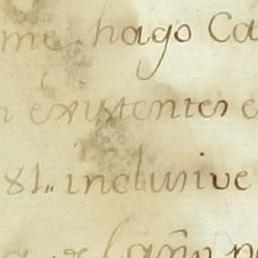 me hago Ca
existentes e
81.. inclusive